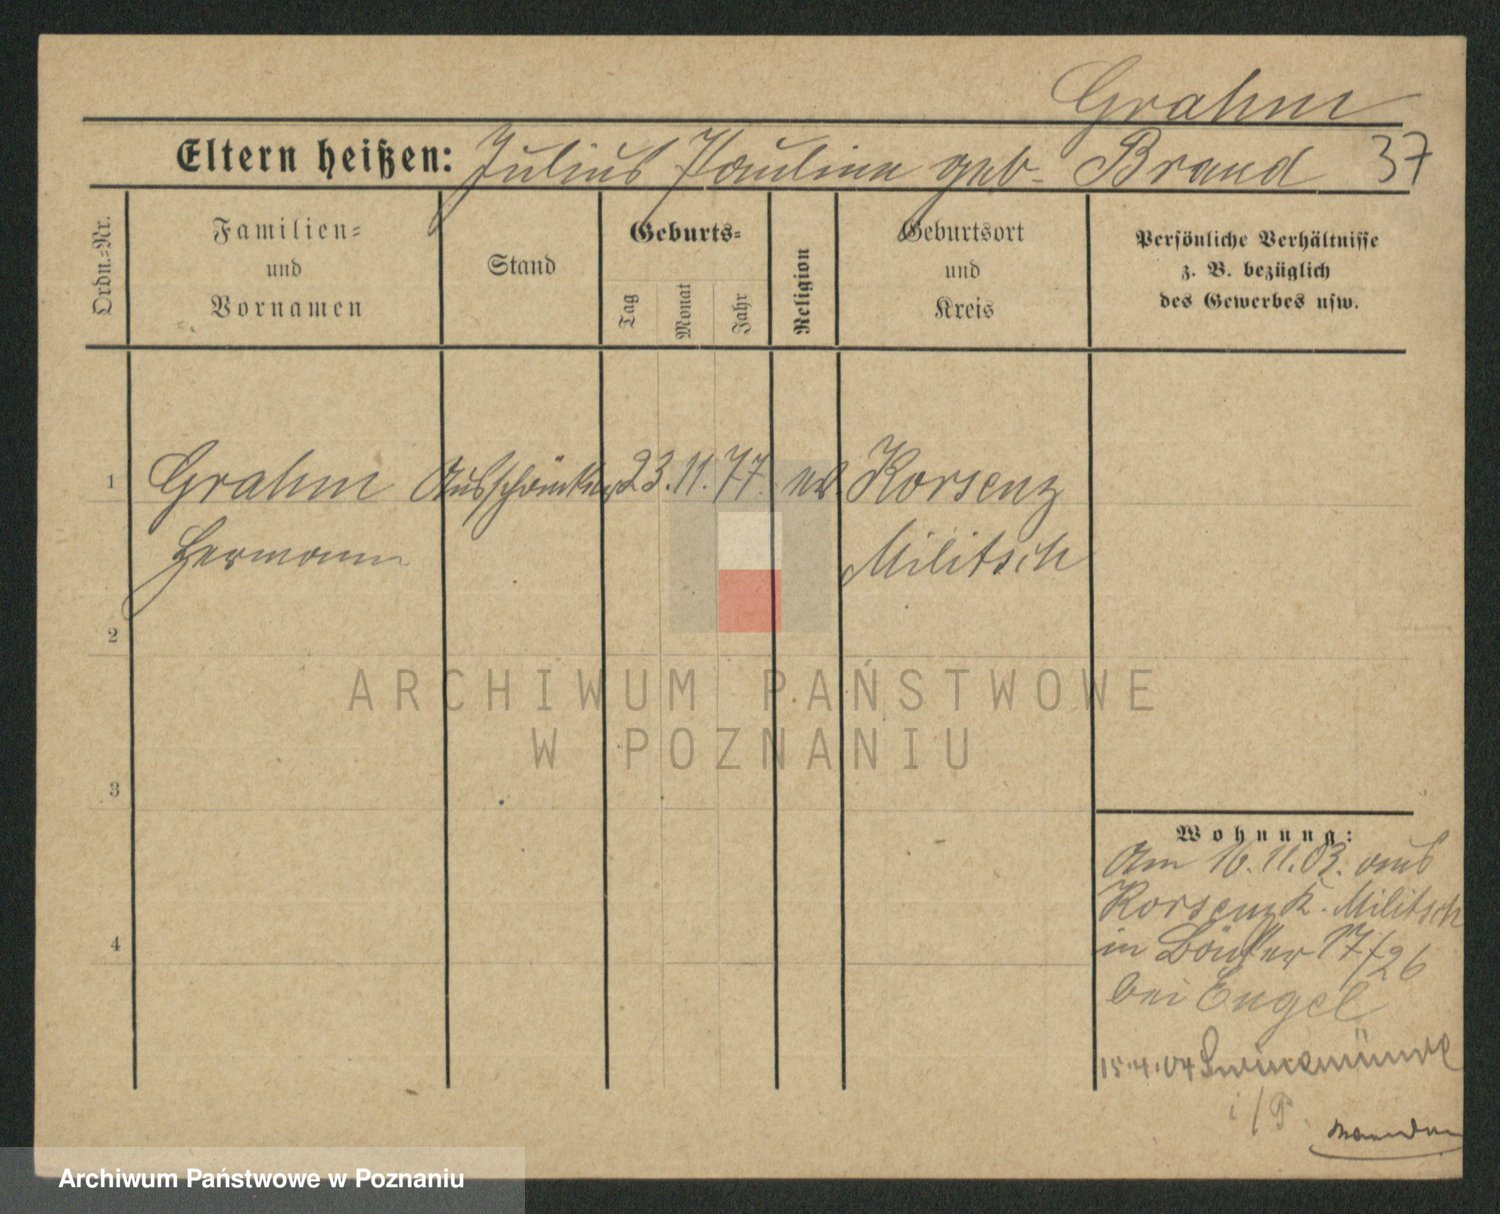 Grahm
Eltern heißen: Julius Pauline geb. Brand 37
Ordn.-Nr.
Familien-
und
Vornamen
Stand
Geburts-
Tag
Monat
Jahr
Religion
Geburtsort
und
Kreis
Persönliche Verhältnisse
z. B. bezüglich
des Gewerbes usw.
1 Grahm Ausschänker 23. 11. 77. ev. Korsenz
Hermann Militsch
2
3
4
ARCHIWUM PAŃSTWOWE
W POZNANIU
Wohnung:
Am 16. 11. 03. aus
Korsenz K. Militsch
in 17/26
bei Engel
15.4.04 Swinemünde
i/P.
Archiwum Państwowe w Poznaniu